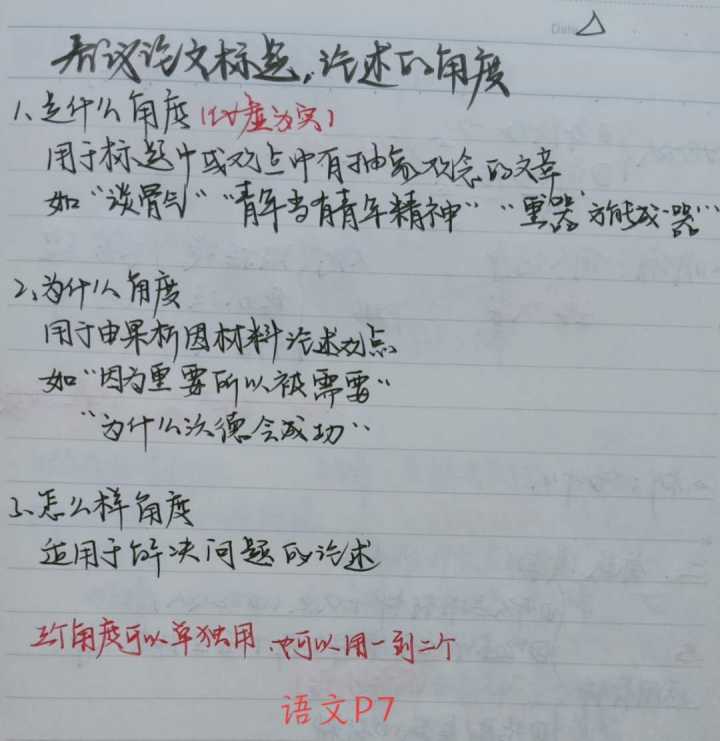 Date
议论文标题,论述的角度
1、是什么角度(化虚为实)
用于标题中或观点中有抽象观念的文章
如"谈骨气""青年当有青年精神""重'器'方能成'器'"
2、为什么角度
用于由果析因材料论述观点
如"因为重要所以被需要"
"为什么沃德会成功"
3、怎么样角度
适用于解决问题的论述
三个角度可以单独用,也可以用一到二个
语文P7